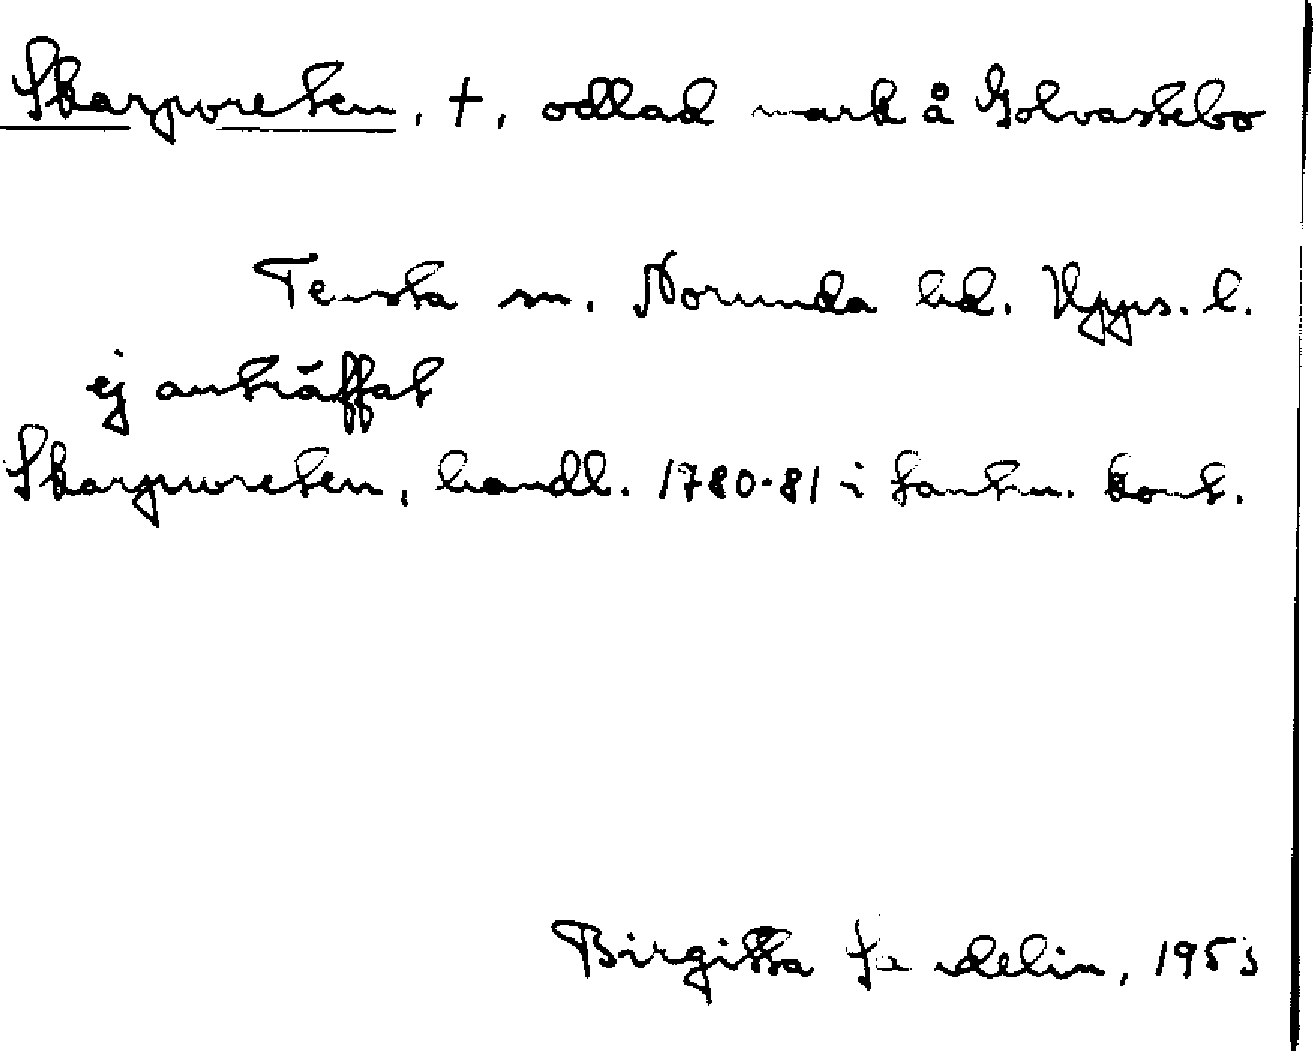 Skarpvreten, †, odlad mark å Golvastebo
Tensta sn. Norunda hd. Upps. l.
ej anträffat
Skarpvreten, handl. 1780-81 i Lantm. kont.
Birgitta delin, 1953